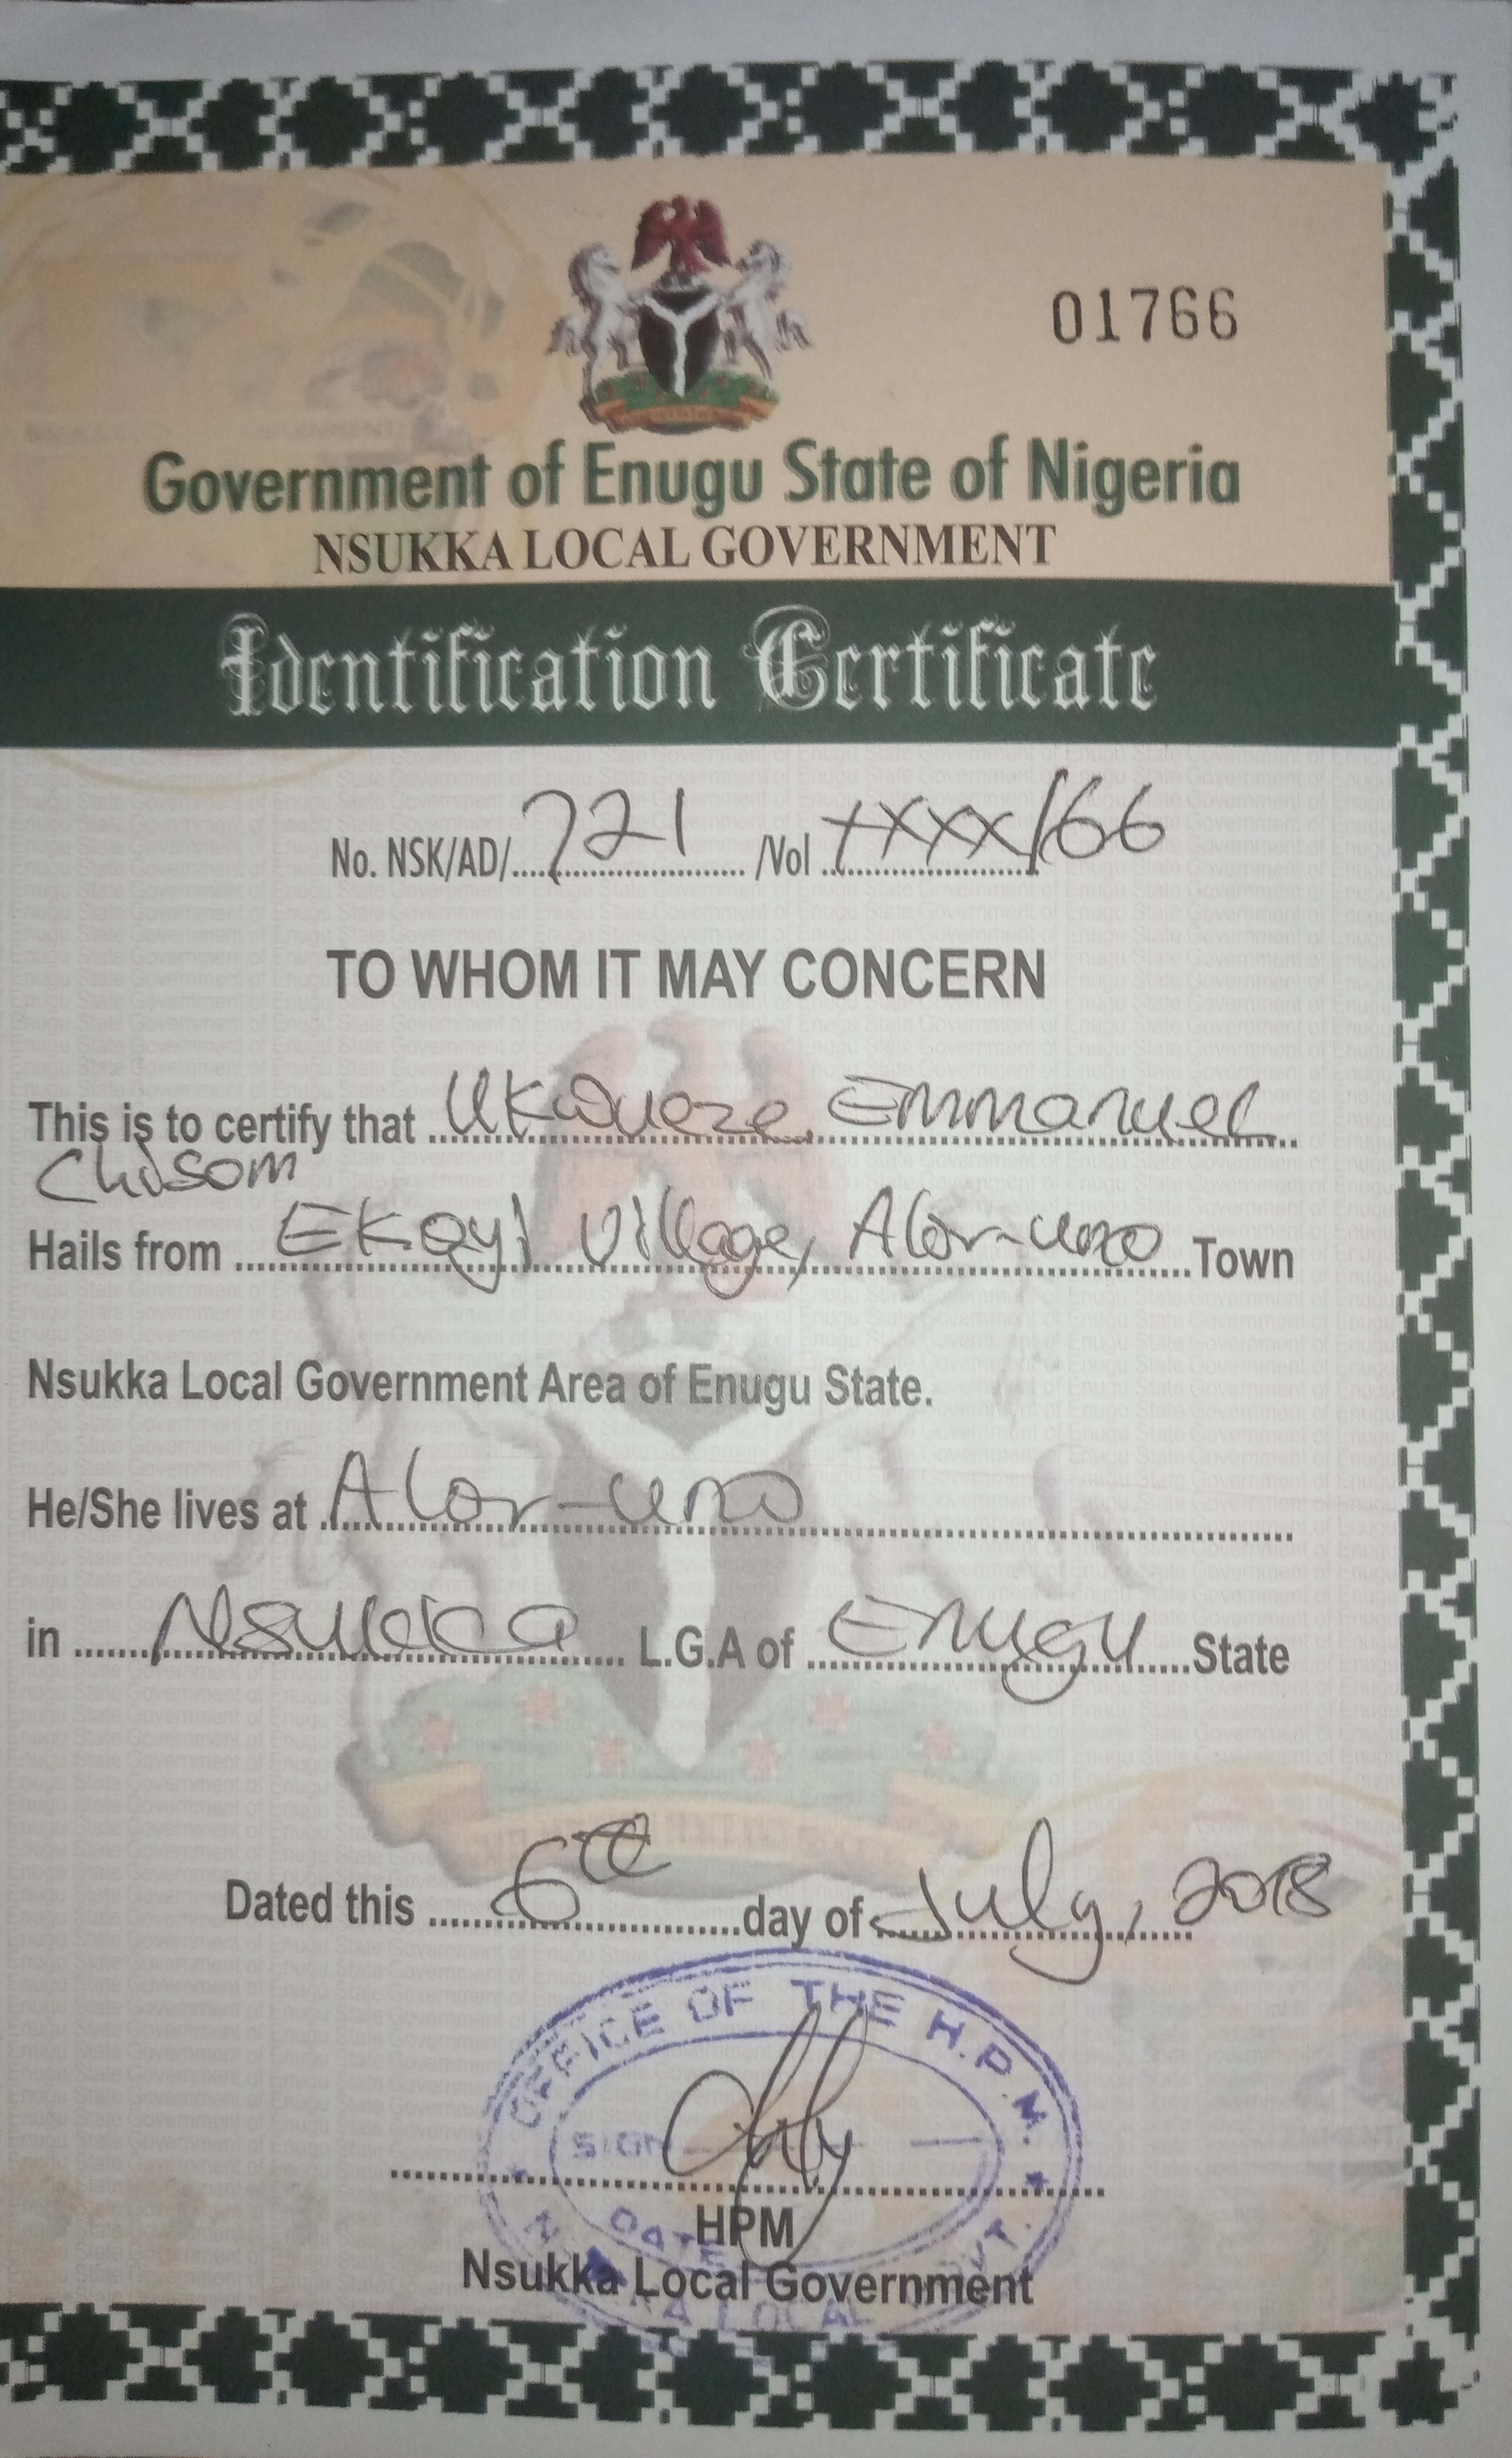 01766
Government of Enugu State of Nigeria
NSUKKA LOCAL GOVERNMENT
Identification Certificate
No. NSK/AD/ 721 /Vol xxxx/66
TO WHOM IT MAY CONCERN
This is to certify that Ukwueze Emmanuel
Chisom
Hails from Ekoyi Village, Alor-uno Town
Nsukka Local Government Area of Enugu State.
He/She lives at Alor-uno
in Nsukka L.G.A of Enugu State
Dated this 6th day of July, 2018
OFFICE OF THE H.P.M.
SIGN
DATE
HPM
Nsukka Local Government